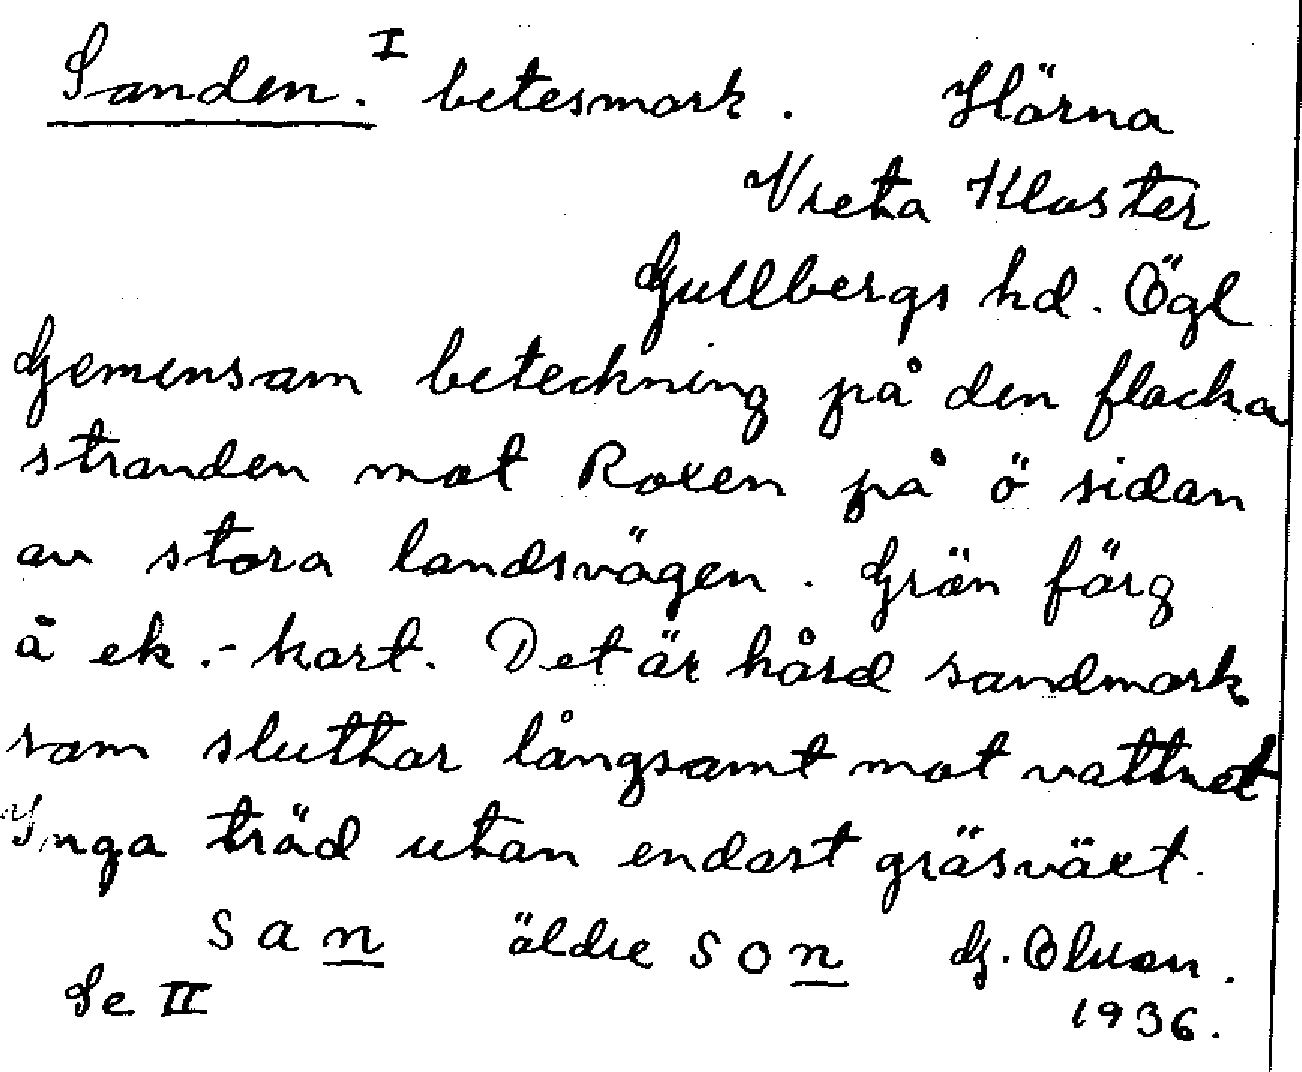 Sanden. I betesmark. Härna
Vreta Kloster
Gullbergs hd. Ögl
Gemensam beteckning på den flacka
stranden mot Roxen på ö sidan
av stora landsvägen. Grön färg
å ek.-kart. Det är hård sandmark
som sluttar långsamt mot vattnet
Inga träd utan endast gräsväxt.
san äldre son G.
Se II 1936.